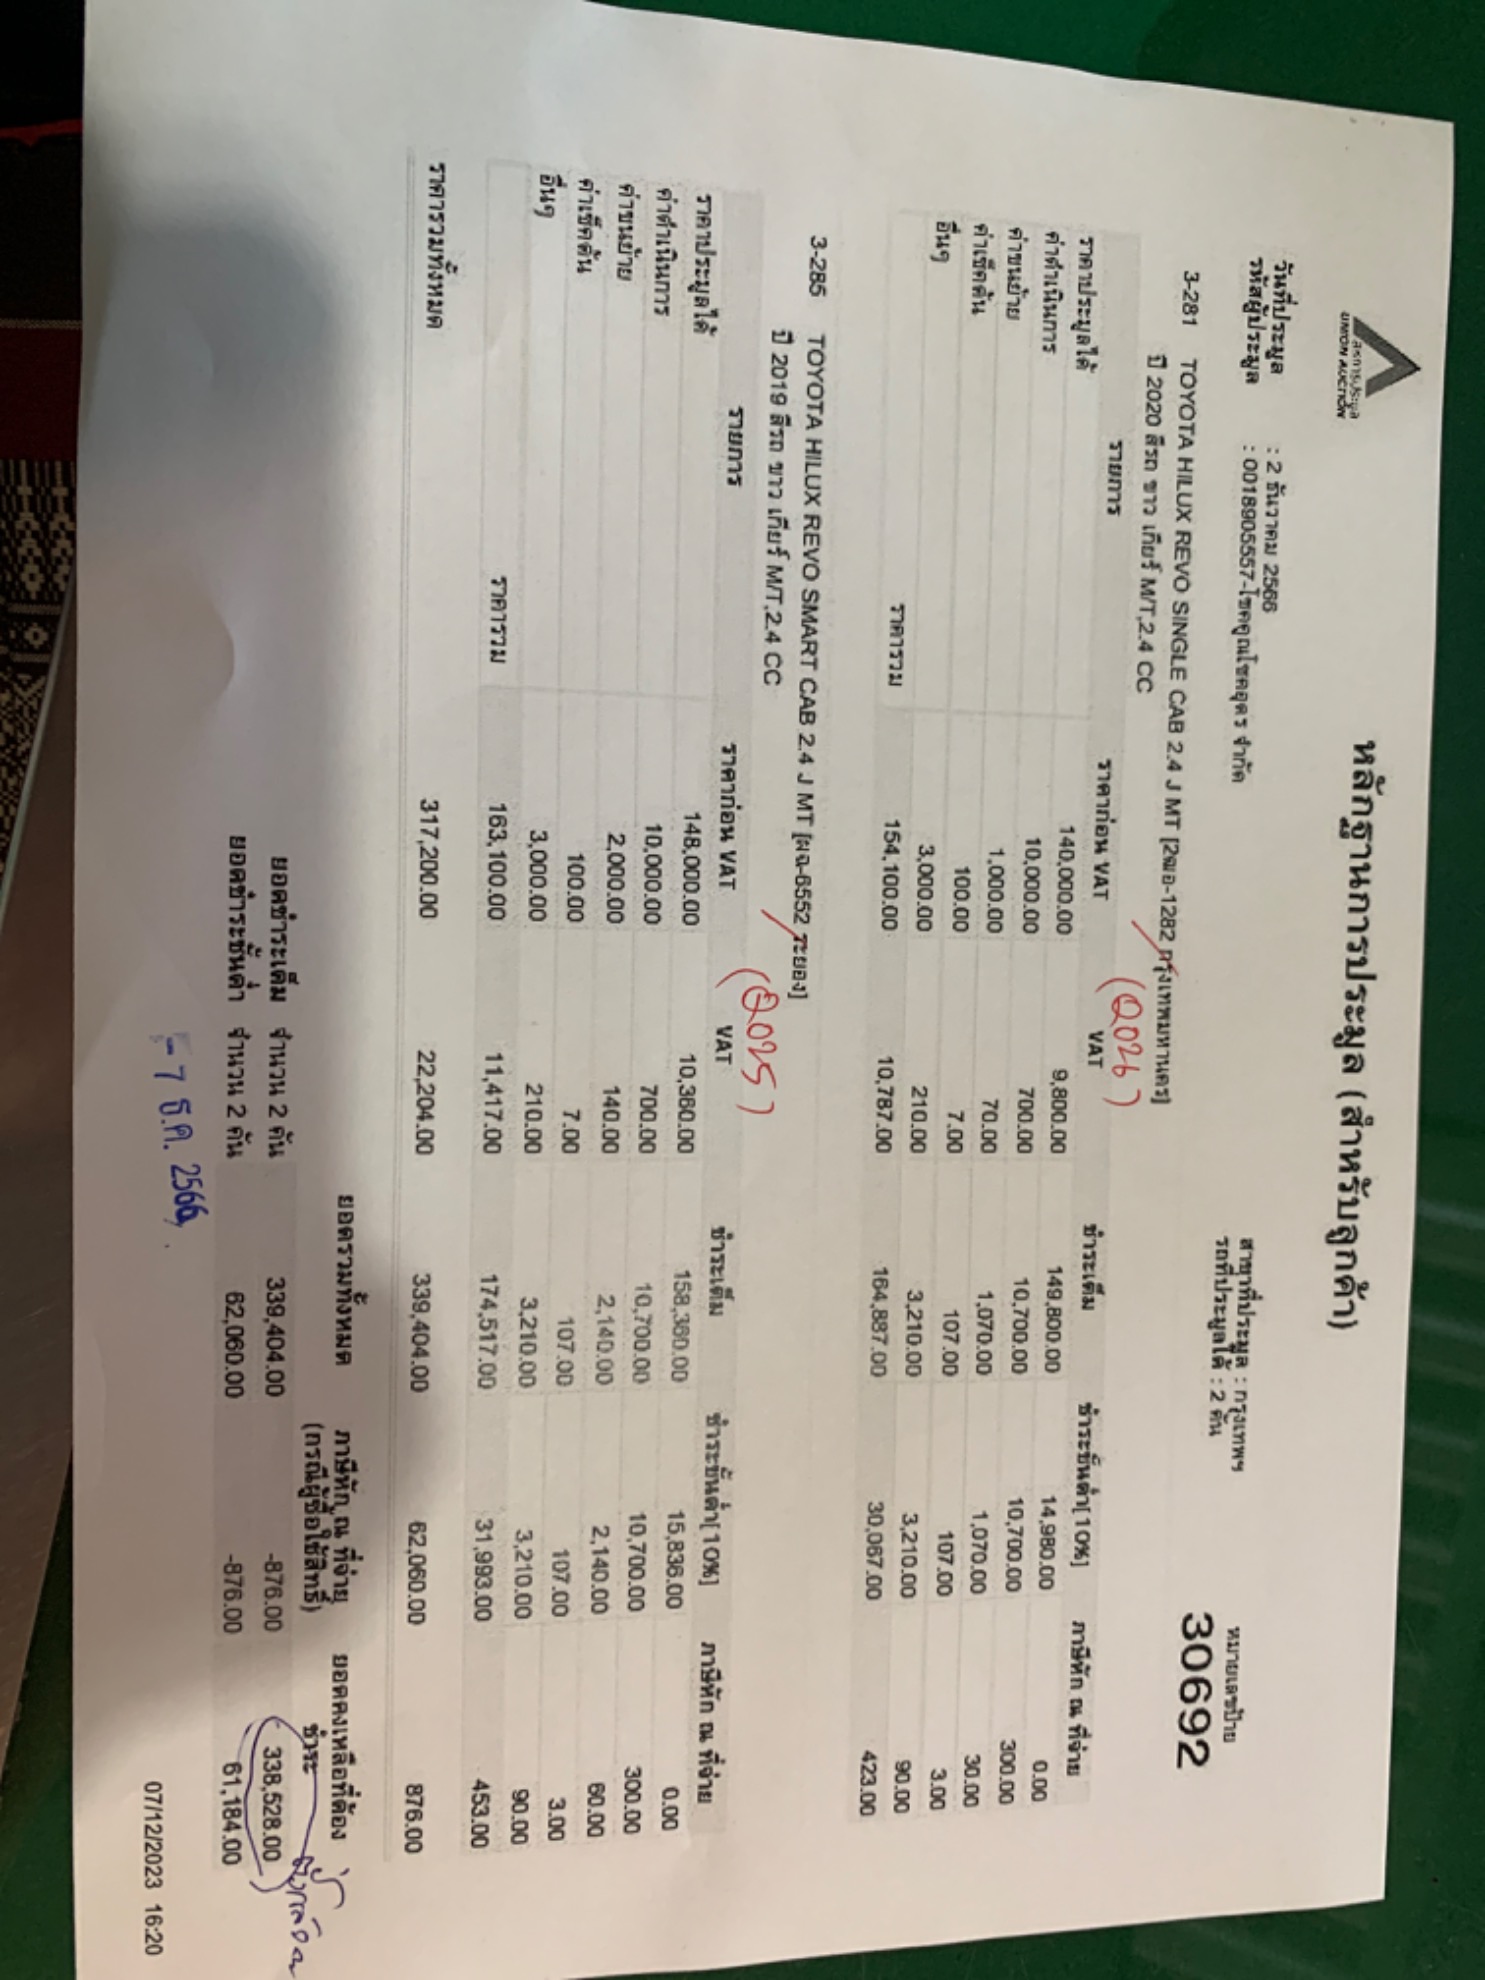 สหการประมูล
UNION AUCTION
หลักฐานการประมูล (สำหรับลูกค้า)
วันที่ประมูล : 2 ธันวาคม 2566 สาขาที่ประมูล : กรุงเทพฯ หมายเลขป้าย
รหัสผู้ประมูล : 0018905557-โชคคูณโชคอุดร จำกัด รถที่ประมูลได้ : 2 คัน 30692
3-281 TOYOTA HILUX REVO SINGLE CAB 2.4 J MT [2ฒอ-1282 กรุงเทพมหานคร]
ปี 2020 สีรถ ขาว เกียร์ M/T,2.4 CC (Q026)
รายการ ราคาก่อน VAT VAT ชำระเต็ม ชำระขั้นต่ำ[10%] ภาษีหัก ณ ที่จ่าย
ราคาประมูลได้ 140,000.00 9,800.00 149,800.00 14,980.00 0.00
ค่าดำเนินการ 10,000.00 700.00 10,700.00 10,700.00 300.00
ค่าขนย้าย 1,000.00 70.00 1,070.00 1,070.00 30.00
ค่าเช็คต้น 100.00 7.00 107.00 107.00 3.00
อื่นๆ 3,000.00 210.00 3,210.00 3,210.00 90.00
ราคารวม 154,100.00 10,787.00 164,887.00 30,067.00 423.00
3-285 TOYOTA HILUX REVO SMART CAB 2.4 J MT [ผฉ-6552 ระยอง]
ปี 2019 สีรถ ขาว เกียร์ M/T,2.4 CC (Q025)
รายการ ราคาก่อน VAT VAT ชำระเต็ม ชำระขั้นต่ำ[10%] ภาษีหัก ณ ที่จ่าย
ราคาประมูลได้ 148,000.00 10,360.00 158,360.00 15,836.00 0.00
ค่าดำเนินการ 10,000.00 700.00 10,700.00 10,700.00 300.00
ค่าขนย้าย 2,000.00 140.00 2,140.00 2,140.00 60.00
ค่าเช็คต้น 100.00 7.00 107.00 107.00 3.00
อื่นๆ 3,000.00 210.00 3,210.00 3,210.00 90.00
ราคารวม 163,100.00 11,417.00 174,517.00 31,993.00 453.00
ราคารวมทั้งหมด 317,200.00 22,204.00 339,404.00 62,060.00 876.00
ยอดรวมทั้งหมด ภาษีหัก ณ ที่จ่าย ยอดคงเหลือที่ต้อง
(กรณีผู้ซื้อใช้สิทธิ์) ชำระ
ยอดชำระเต็ม จำนวน 2 คัน 339,404.00 -876.00 338,528.00
ยอดชำระขั้นต่ำ จำนวน 2 คัน 62,060.00 -876.00 61,184.00
- 7 ธ.ค. 2566
07/12/2023 16:20